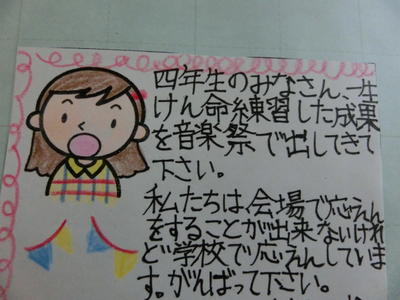 四年生のみなさん、一生
けん命練習した成果
を音楽祭で出してきて
下さい。
私たちは、会場で応えん
をすることが出来ないけれ
ど学校で応えんしていま
す。がんばって下さい。